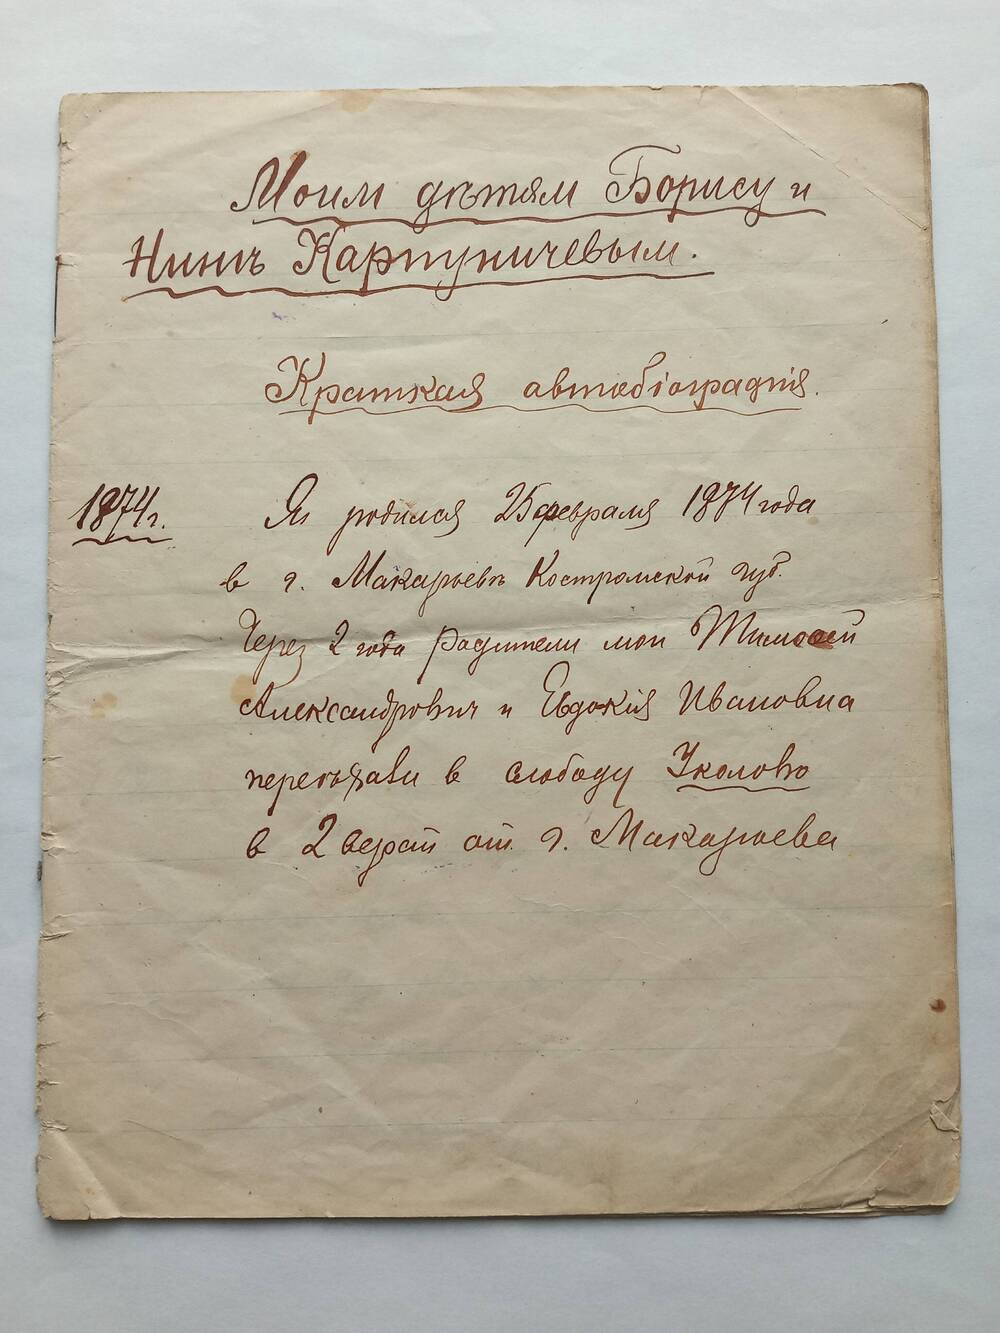 Моим дѣтям Борису и
Нинѣ Карпуничевым.
Краткая автобіографія.
1874 г. Я родился 25 февраля 1874 года
в г. Макарьевѣ Костромской губ.
Через 2 года родители мои Тимофей
Александрович и Евдокія Ивановна
переѣхали в слободу Уколово
в 2 верст. от г. Макарьева